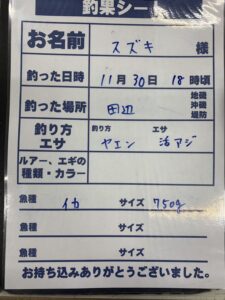 釣果シート
お名前 スズキ 様
釣った日時 11月30日 18時頃
釣った場所 田辺 地磯 沖磯 堤防
釣り方 エサ 釣り方 ヤエン エサ 活アジ
ルアー、エギの種類・カラー
魚種 イカ サイズ 750g
魚種 サイズ
魚種 サイズ
お持ち込みありがとうございました。